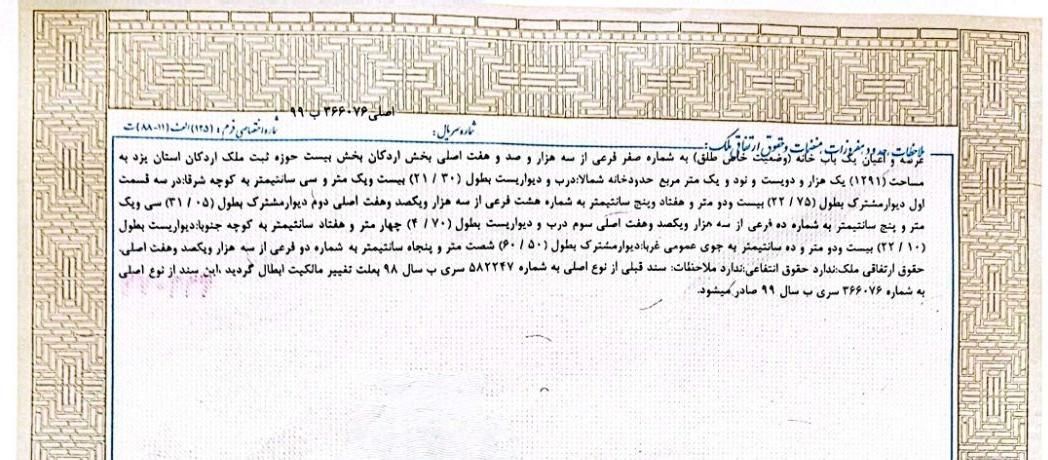 اصلی ۳۶۶۰۷۶ ب ۹۹
شماره اختصاصی فرم: (۱۲۵) الف (۱۱-۸۸) ت
شماره سریال:
ملاحظات، حدود، مفروزات، منضمات و حقوق ارتفاقی ملک:
عرصه و اعیان یک باب خانه (وضعیت خاص طلق) به شماره صفر فرعی از سه هزار و صد و هفت اصلی بخش اردکان بخش بیست حوزه ثبت ملک اردکان استان یزد به
مساحت (۱۲۹۱) یک هزار و دویست و نود و یک متر مربع حدودخانه شمالا:درب و دیواریست بطول (۳۰ / ۲۱) بیست ویک متر و سی سانتیمتر به کوچه شرقا:در سه قسمت
اول دیوارمشترک بطول (۷۵ / ۲۲) بیست ودو متر و هفتاد وپنج سانتیمتر به شماره هشت فرعی از سه هزار ویکصد وهفت اصلی دوم دیوارمشترک بطول (۰۵ / ۳۱) سی ویک
متر و پنج سانتیمتر به شماره ده فرعی از سه هزار ویکصد وهفت اصلی سوم درب و دیواریست بطول (۷۰ / ۴) چهار متر و هفتاد سانتیمتر به کوچه جنوبا:دیواریست بطول
(۱۰ / ۲۲) بیست ودو متر و ده سانتیمتر به جوی عمومی غربا:دیوارمشترک بطول (۵۰ / ۶۰) شصت متر و پنجاه سانتیمتر به شماره دو فرعی از سه هزار ویکصد وهفت اصلی.
حقوق ارتفاقی ملک:ندارد حقوق انتفاعی:ندارد ملاحظات: سند قبلی از نوع اصلی به شماره ۵۸۲۲۴۷ سری ب سال ۹۸ بعلت تغییر مالکیت ابطال گردید .این سند از نوع اصلی
به شماره ۳۶۶۰۷۶ سری ب سال ۹۹ صادر میشود.